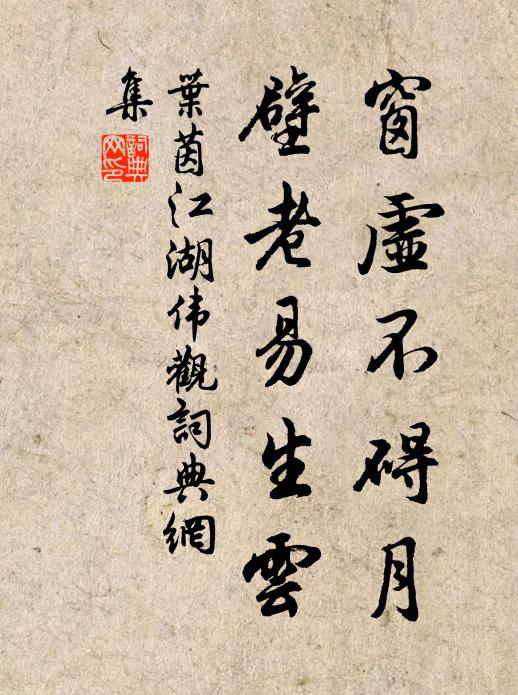 窗虛不碍月
壁老易生雲
葉茵江湖伟觀詞典網
集
詞典
网印